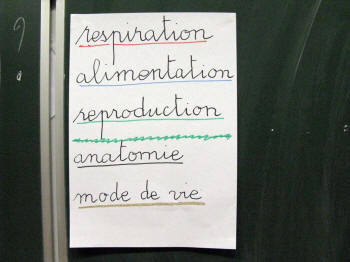 respiration
alimentation
reproduction
anatomie
mode de vie